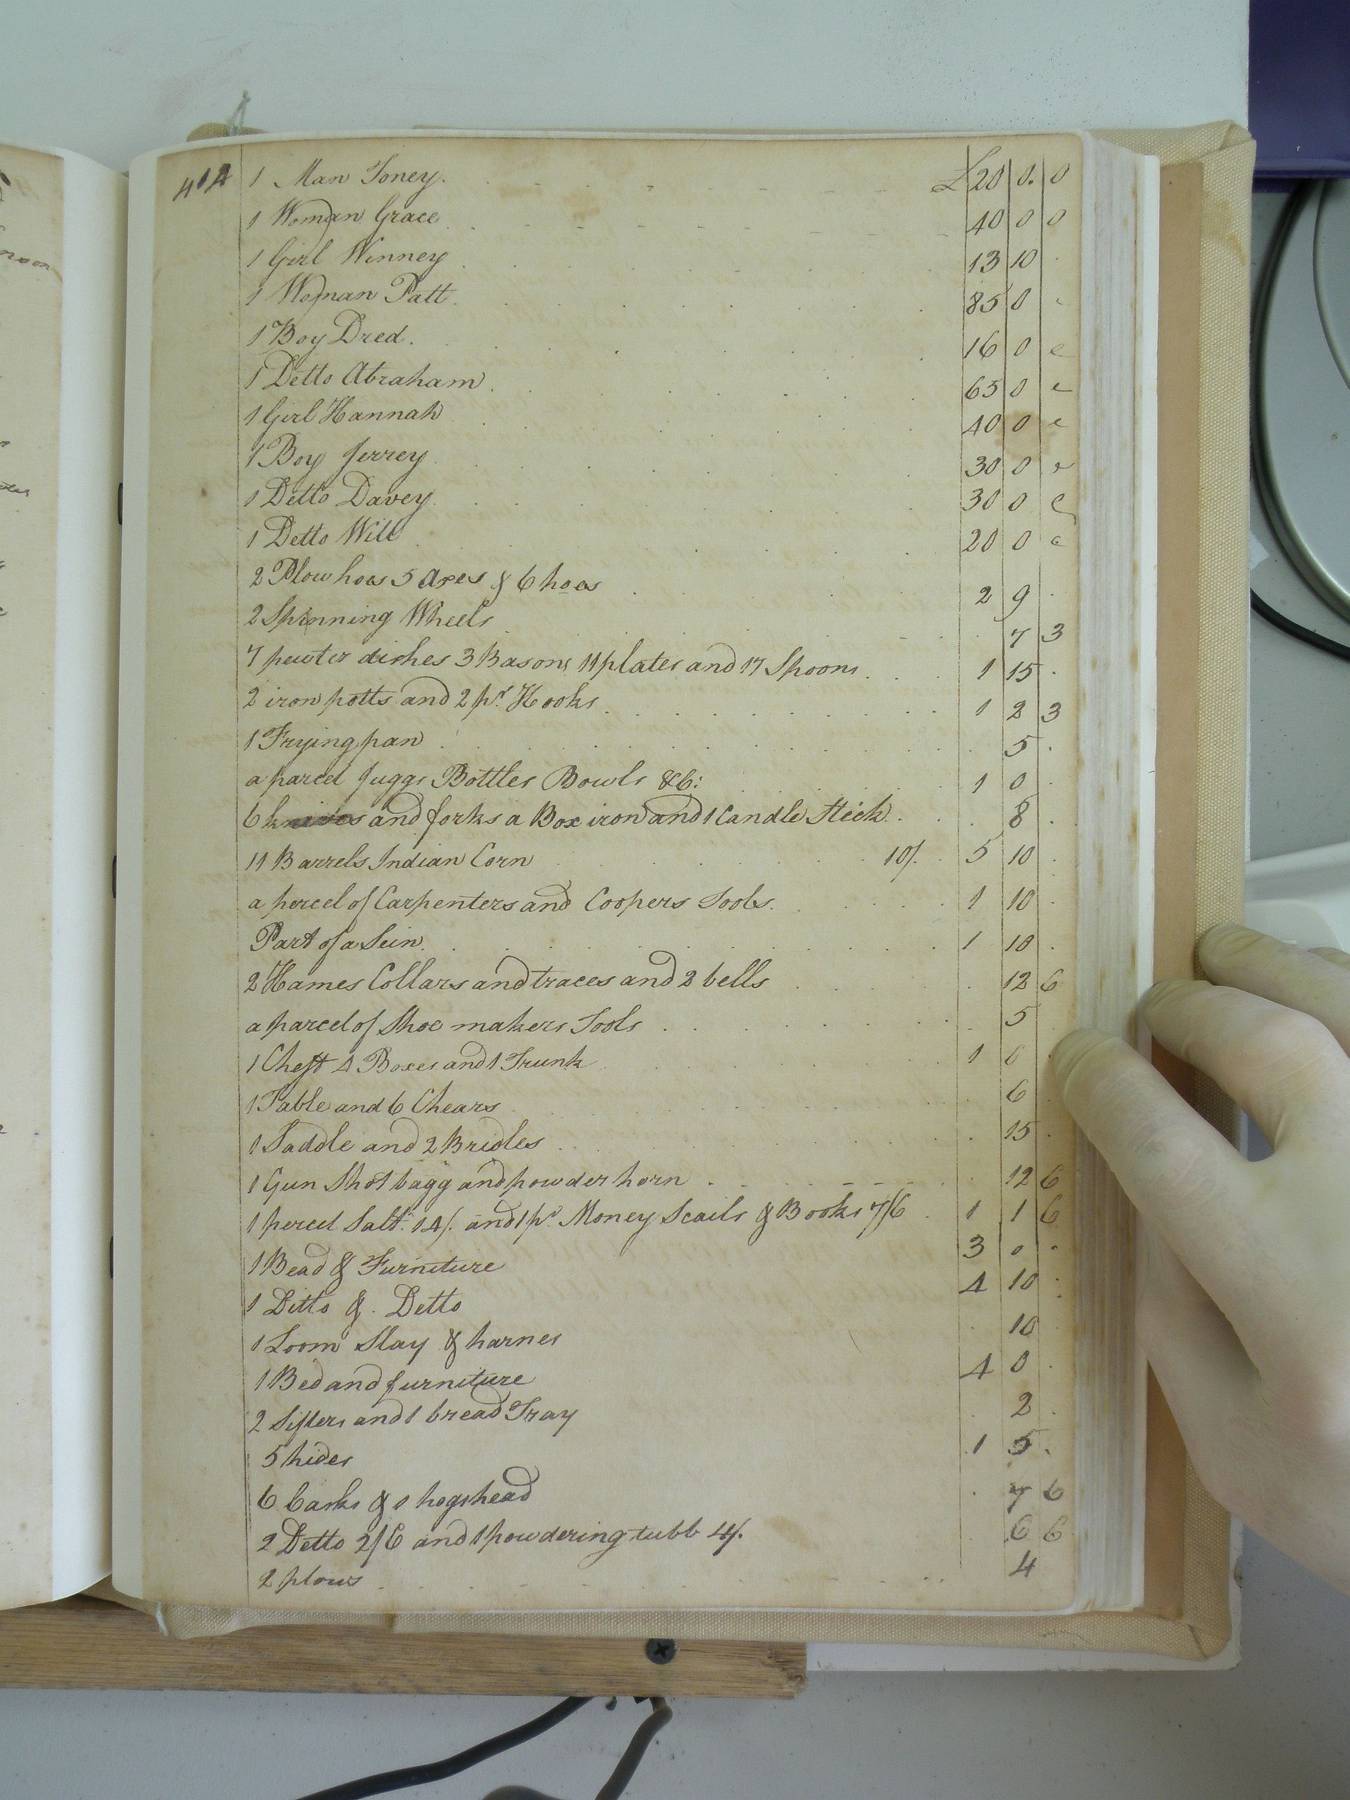 414
1 Man Toney. £20 0. 0
1 Woman Grace 40 0 0
1 Girl Winney 13 10
1 Woman Patt 85 0
1 Boy Dred. 16 0
1 Detto Abraham 65 0
1 Girl Hannah 40 0
1 Boy Jerrey 30 0
1 Detto Davey 30 0
1 Detto Will 20 0
2 Plow hoes 5 Axes & 6 hoes 2 9
2 Spinning Wheels 7 3
7 pewter dishes 3 Basons 11 plates and 17 Spoons 1 15
2 iron potts and 2 pr. Hooks 1 2 3
1 Frying pan 5
a parcel Juggs Bottles Bowls &C: 1 0
6 knives and forks a Box iron and 1 Candle Stick 8
11 Barrels Indian Corn 10/. 5 10
a percel of Carpenters and Coopers Tools 1 10
Part of a Sein 1 10
2 Hames Collars and traces and 2 bells 12 6
a parcel of Shoe makers Tools 5
1 Chest 4 Boxes and 1 Trunk 1 0
1 Table and 6 Chears 6
1 Saddle and 2 Bridles 15
1 Gun Shot bagg and powder horn 12 6
1 percel Salt 14/. and 1 pr. Money Scails & Books 7/6 1 1 6
1 Bead & Furniture 3 0
1 Ditto & Detto 4 10
1 Loom Slay & harnes 10
1 Bed and furniture 4 0
2 Sifters and 1 bread Tray 2
5 hides 1 5
6 Casks & 1 hogshead 7 6
2 Detto 2/6 and 1 powdering tubb 4/. 6 6
2 plows 4